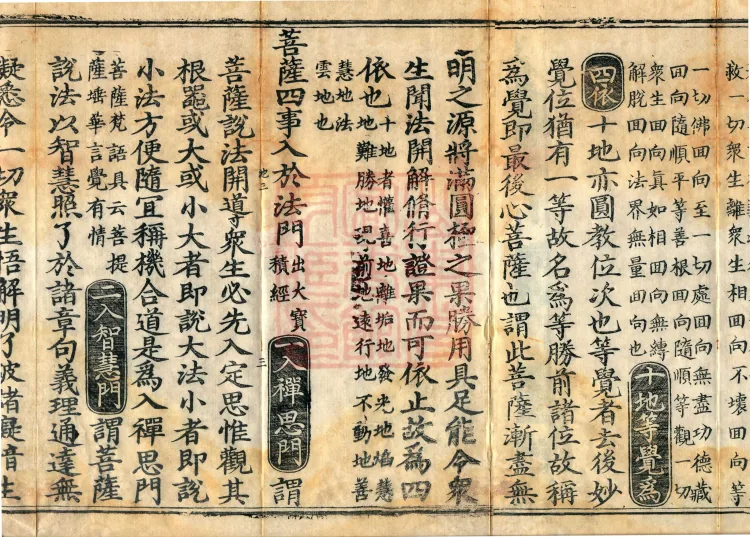 救一切衆生離衆生相回向不壞回向等
一切佛回向至一切處回向無盡功德藏
回向隨順平等善根回向隨順等觀一切
衆生回向真如相回向無縛
解脫回向法界無量回向也
十地等覺爲
四依十地亦圓教位次也等覺者去後妙
覺位猶有一等故名爲等勝前諸位故稱
爲覺即最後心菩薩也謂此菩薩漸盡無
明之源將滿圓極之果勝用具足能令衆
生聞法開解脩行證果而可依止故爲四
依也
十地者懽喜地離垢地發光地焰慧
地難勝地現前地遠行地不動地善
慧地法
雲地也
菩薩四事入於法門
出大寶
積經
一入禪思門謂
地三
三
菩薩說法開導衆生必先入定思惟觀其
根器或大或小大者即說大法小者即說
小法方便隨宜稱機合道是爲入禪思門
菩薩梵語具云菩提
薩埵華言覺有情
二入智慧門謂菩薩
說法以智慧照了於諸章句義理通達無
疑悉令一切衆生悟解明了